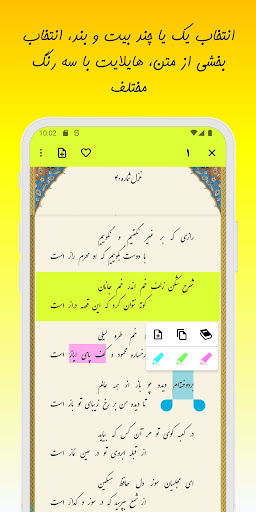 انتخاب یک یا چند بیت و بند، انتخاب
بخشی از متن، هایلایت با سه رنگ
مختلف
10:02
۱
غزل شماره ۴۰
رازی که بر غیر نگفتیم و نگوییم
با دوست بگوییم که او محرم راز است
شرح شکن زلف خم اندر خم جانان
کوته نتوان کرد که این قصه دراز است
خم طره لیلی
رخساره محمود و کف پای ایاز است
بردوخته‌ام دیده چو باز از همه عالم
تا دیده من بر رخ زیبای تو باز است
در کعبه کوی تو هر آن کس که بیاید
از قبله ابروی تو در عین نماز است
ای مجلسیان سوز دل حافظ مسکین
از شمع بپرسید که در سوز و گداز است